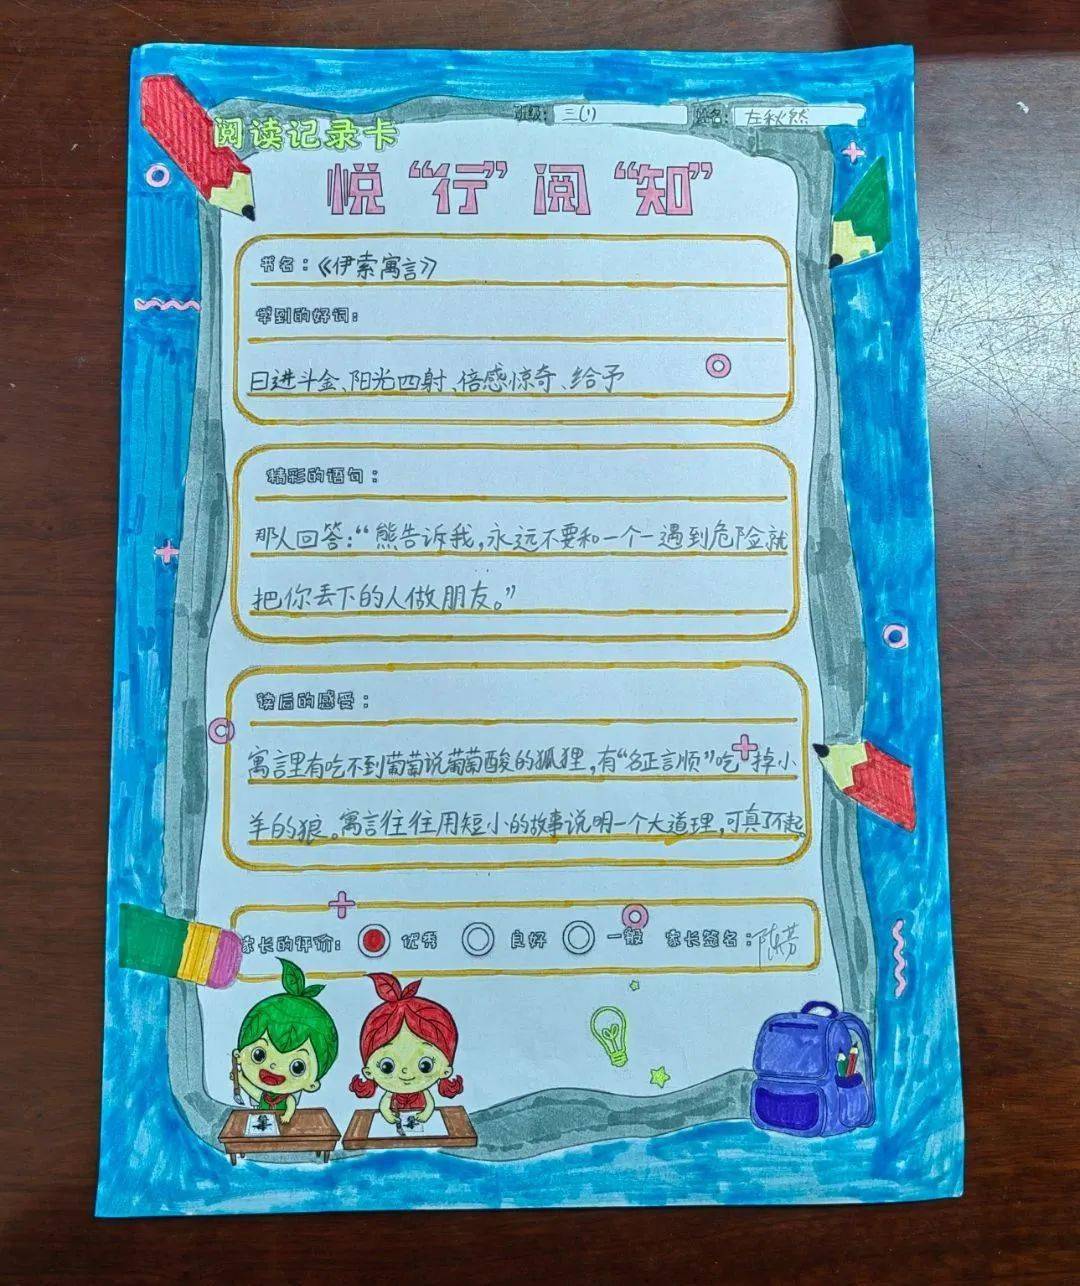 班级：三(1) 姓名：左秋然
阅读记录卡
悦“行”阅“知”
书名：《伊索寓言》
学到的好词：
日进斗金、阳光四射、倍感惊奇、给予
精彩的语句：
那人回答：“熊告诉我，永远不要和一个一遇到危险就
把你丢下的人做朋友。”
读后的感受：
寓言里有吃不到葡萄说葡萄酸的狐狸，有“名正言顺”吃掉小
羊的狼。寓言往往用短小的故事说明一个大道理，可真了不起。
家长的评价： 优秀 良好 一般 家长签名：陈芳